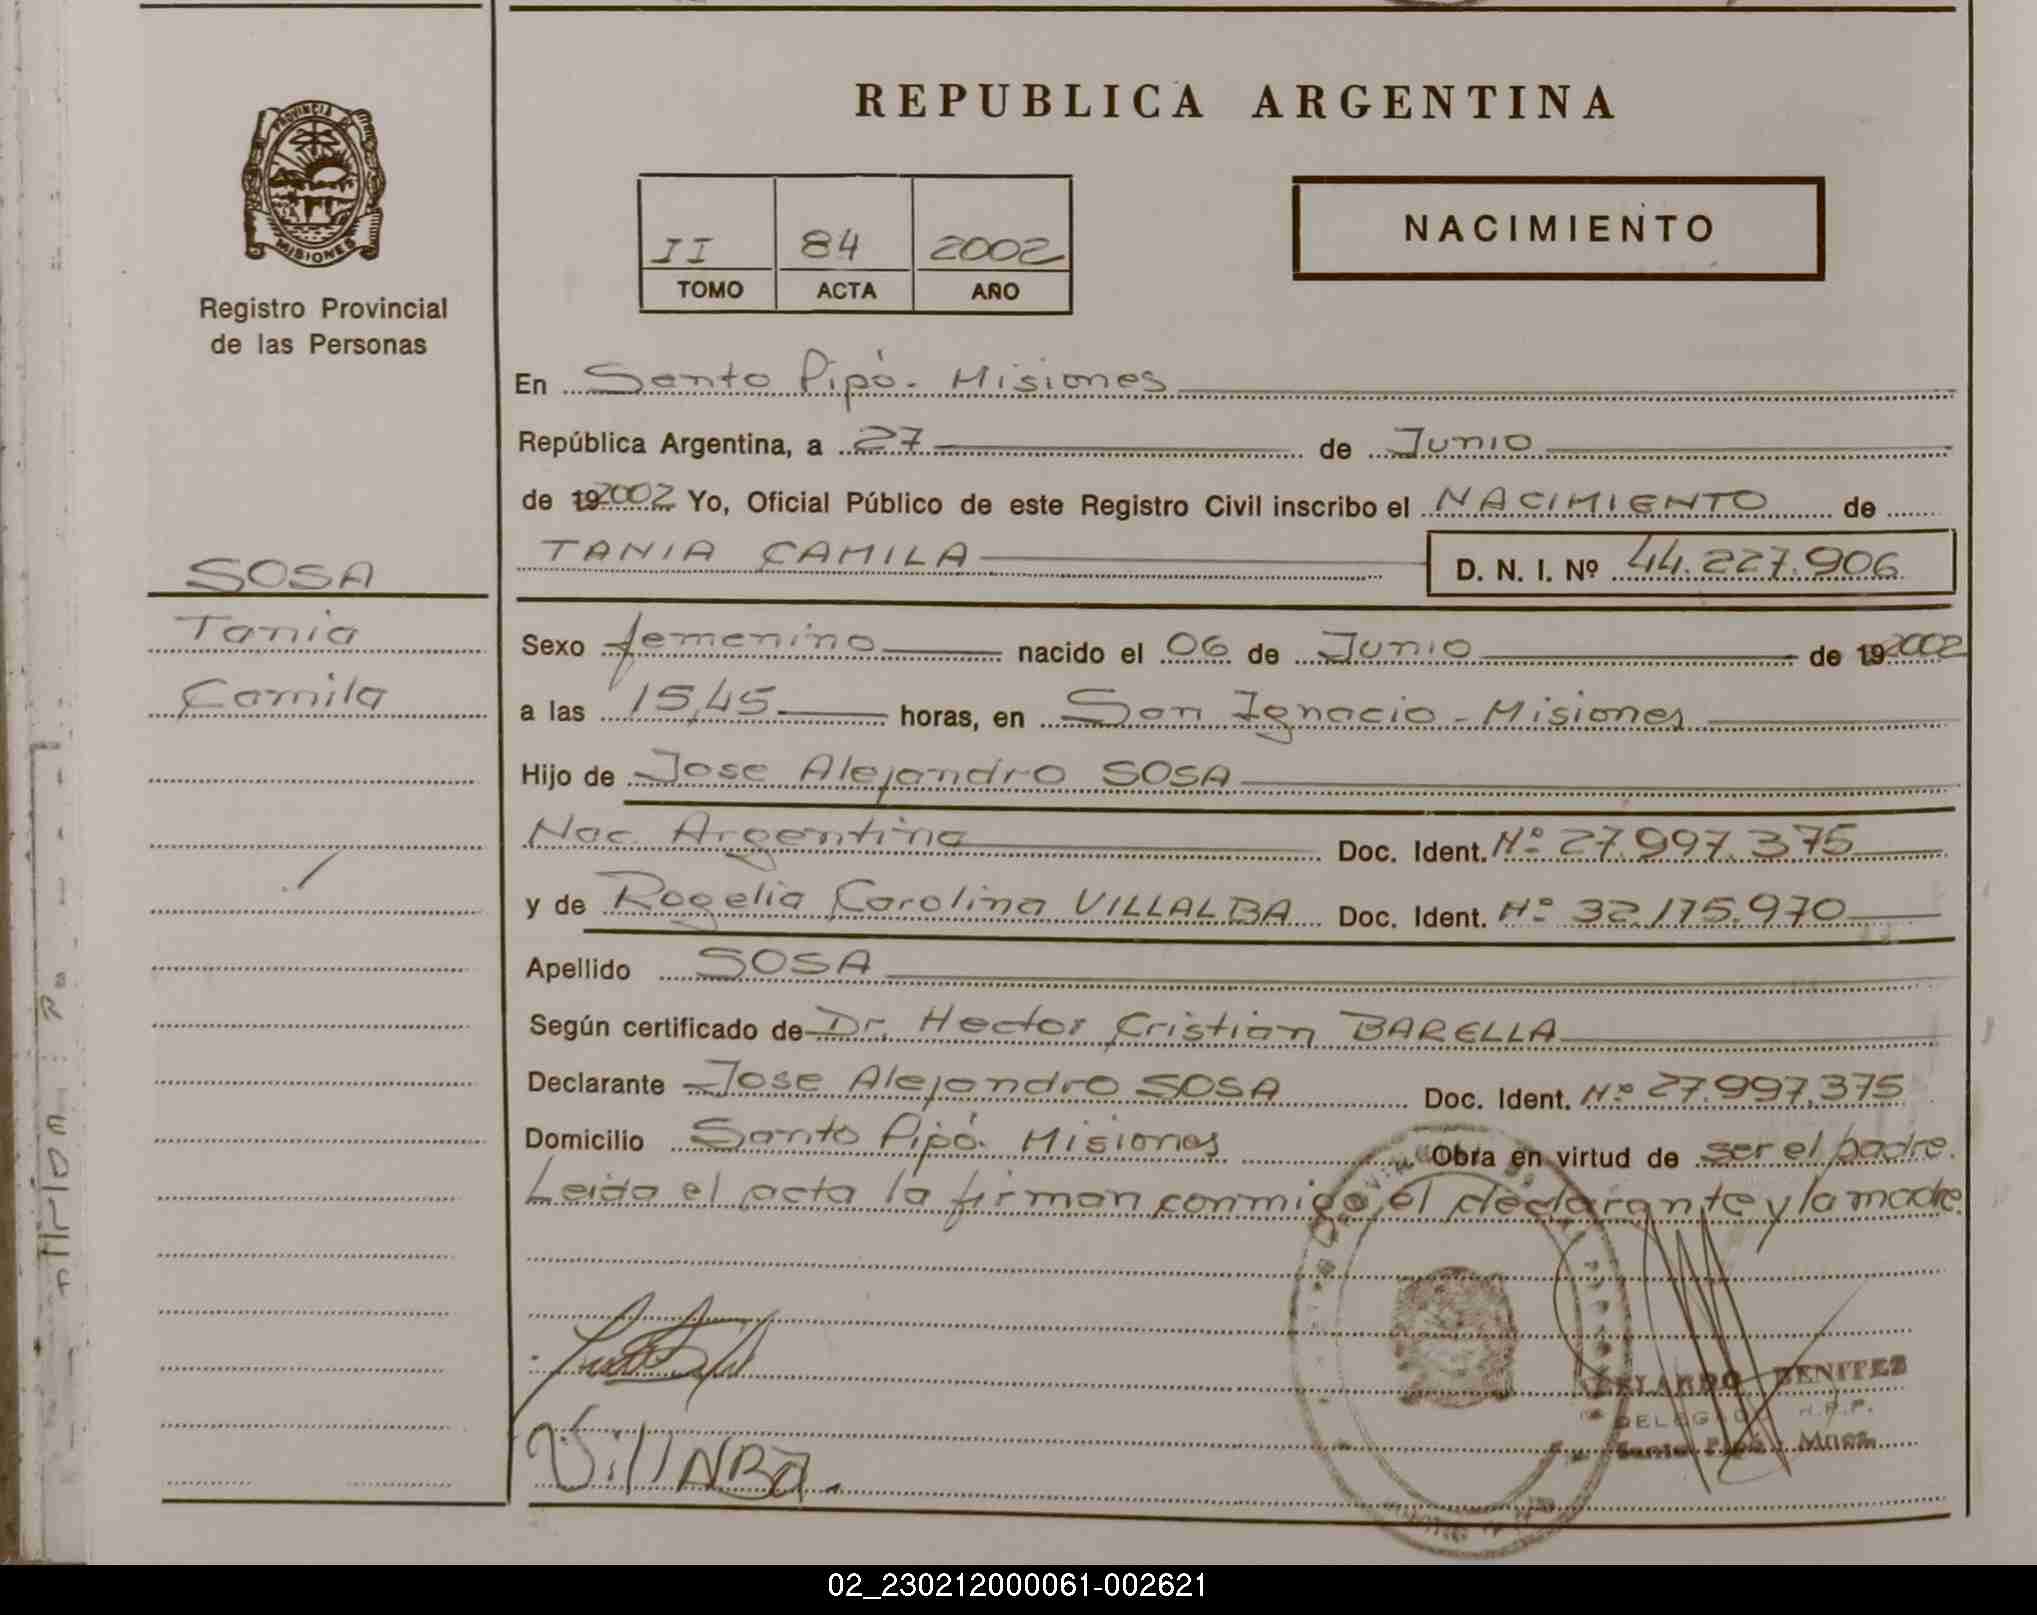 REPUBLICA ARGENTINA
PROVINCIA DE
MISIONES
Registro Provincial
de las Personas
II 84 2002
TOMO ACTA AÑO
NACIMIENTO
SOSA
Tania
Camila
En Santo Pipó. Misiones
República Argentina, a 27 de Junio
de 192002 Yo, Oficial Público de este Registro Civil inscribo el NACIMIENTO de
TANIA CAMILA D. N. I. Nº 44.227.906
Sexo femenino nacido el 06 de Junio de 192002
a las 15,45 horas, en San Ignacio - Misiones
Hijo de Jose Alejandro SOSA
Nac. Argentina Doc. Ident. Nº 27.997.375
y de Rogelia Carolina VILLALBA Doc. Ident. Nº 32.175.970
Apellido SOSA
Según certificado de Dr. Hector Cristian BARELLA
Declarante Jose Alejandro SOSA Doc. Ident. Nº 27.997.375
Domicilio Santo Pipó. Misiones Obra en virtud de ser el padre.
Leida el acta la firman conmigo, el declarante y la madre.
BENITEZ
Santo Pipó Mnes.
Villalba.
02_230212000061-002621